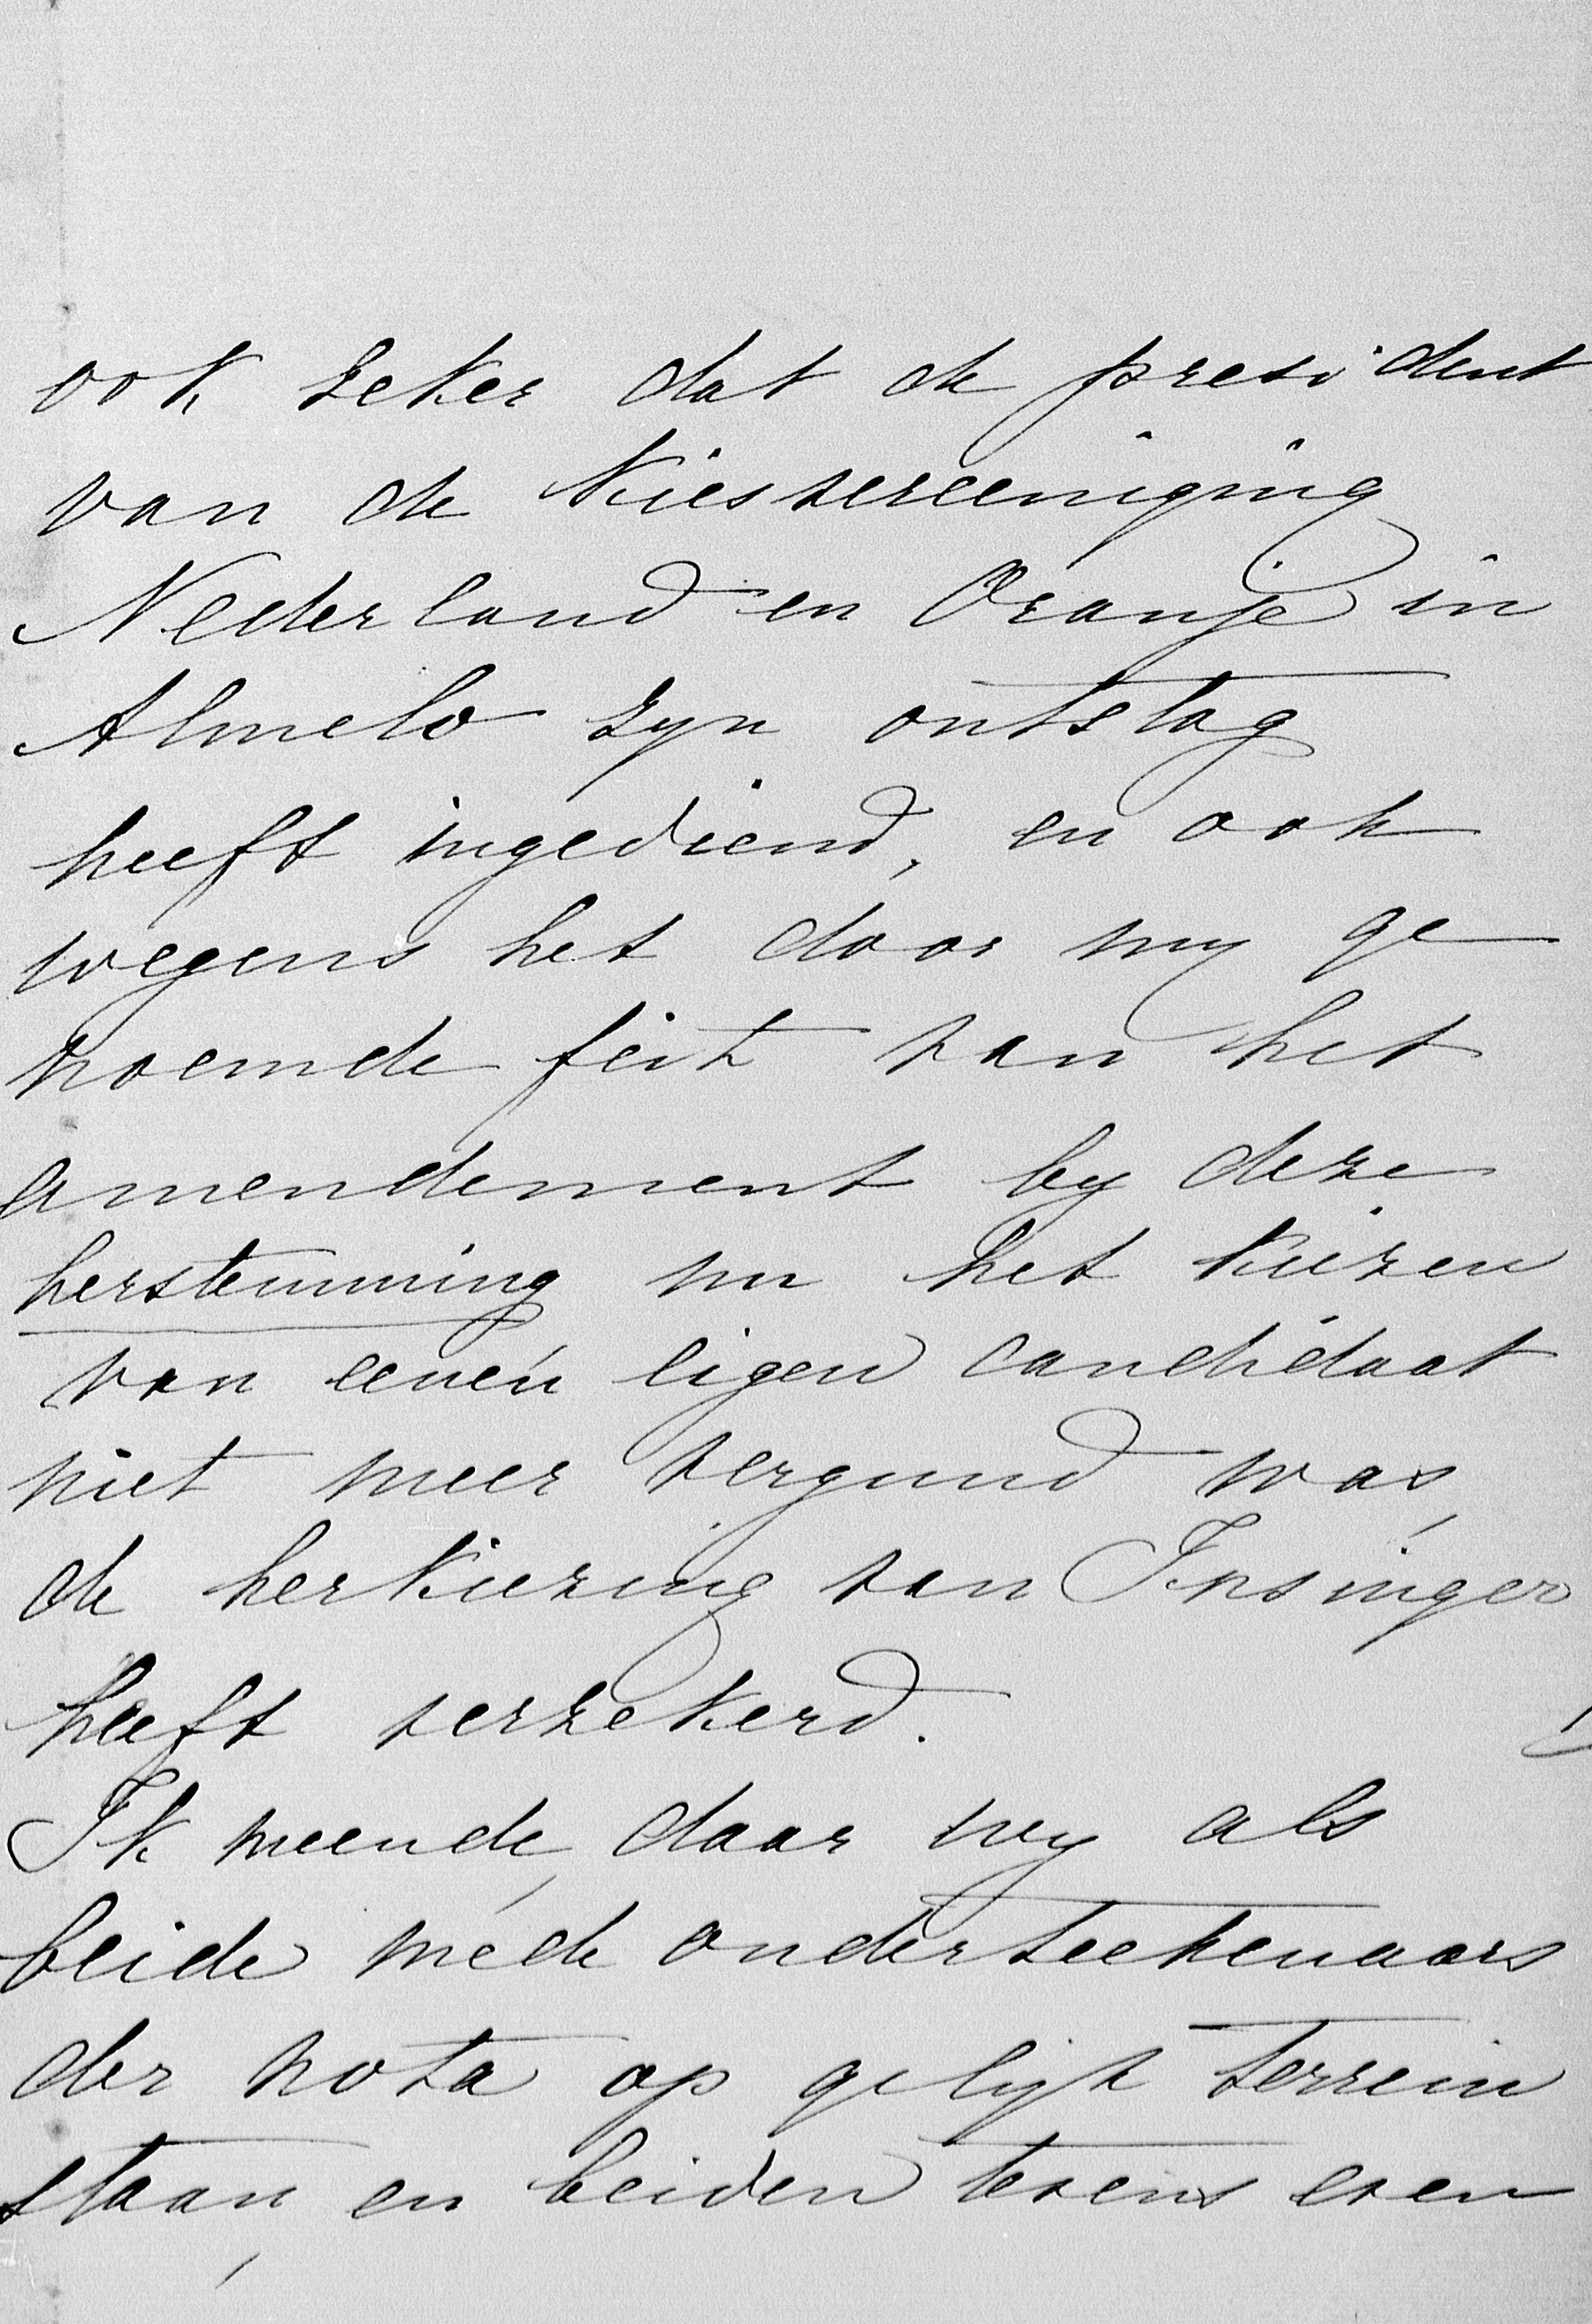 ook zeker dat de president
van de Kiesvereeniging
Nederland en Oranje in
Almelo zyn ontslag
heeft ingediend, en ook
wegens het door my ge
noemde feit van het
amendement by deze
herstemming nu het kiezen
van eenen eigen candidaat
niet meer vergund was,
de herkiezing van Insinger
heeft verzekerd.
Ik meende, daar wy als
beide mede onderteekenaars
der nota op gelyk terrein
staan, en beiden tevens even